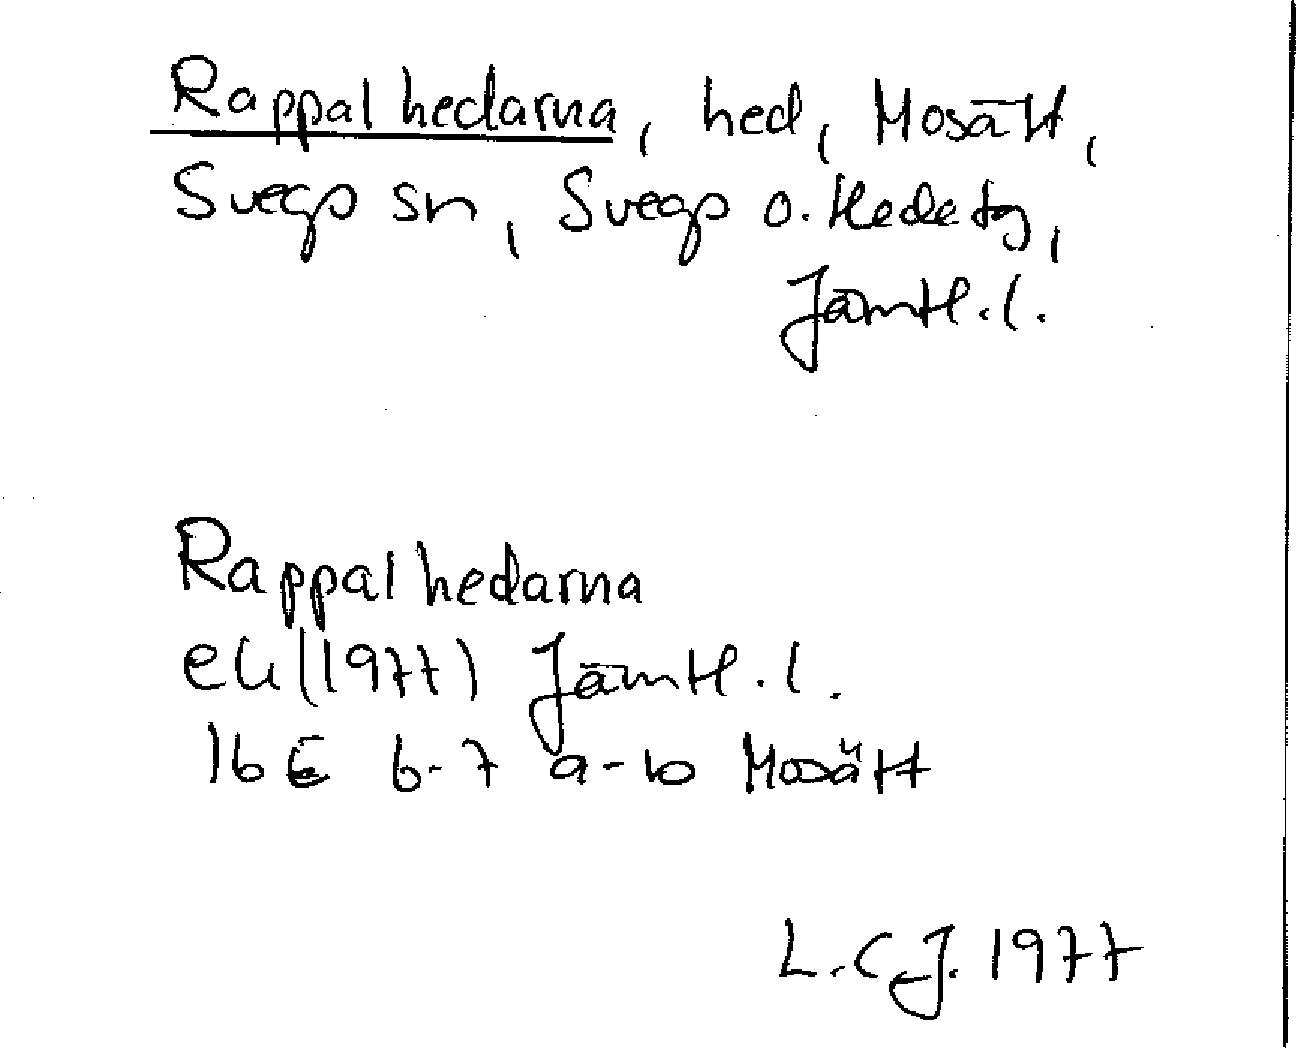 Rappalhedarna, hed, Mosätt,
Svegs sn, Svegs o. Hede tg,
Jämtl. l.
Rappalhedarna
ek (1977) Jämtl. l.
16E 6-7 a-b Mosätt
L.C.J. 1977